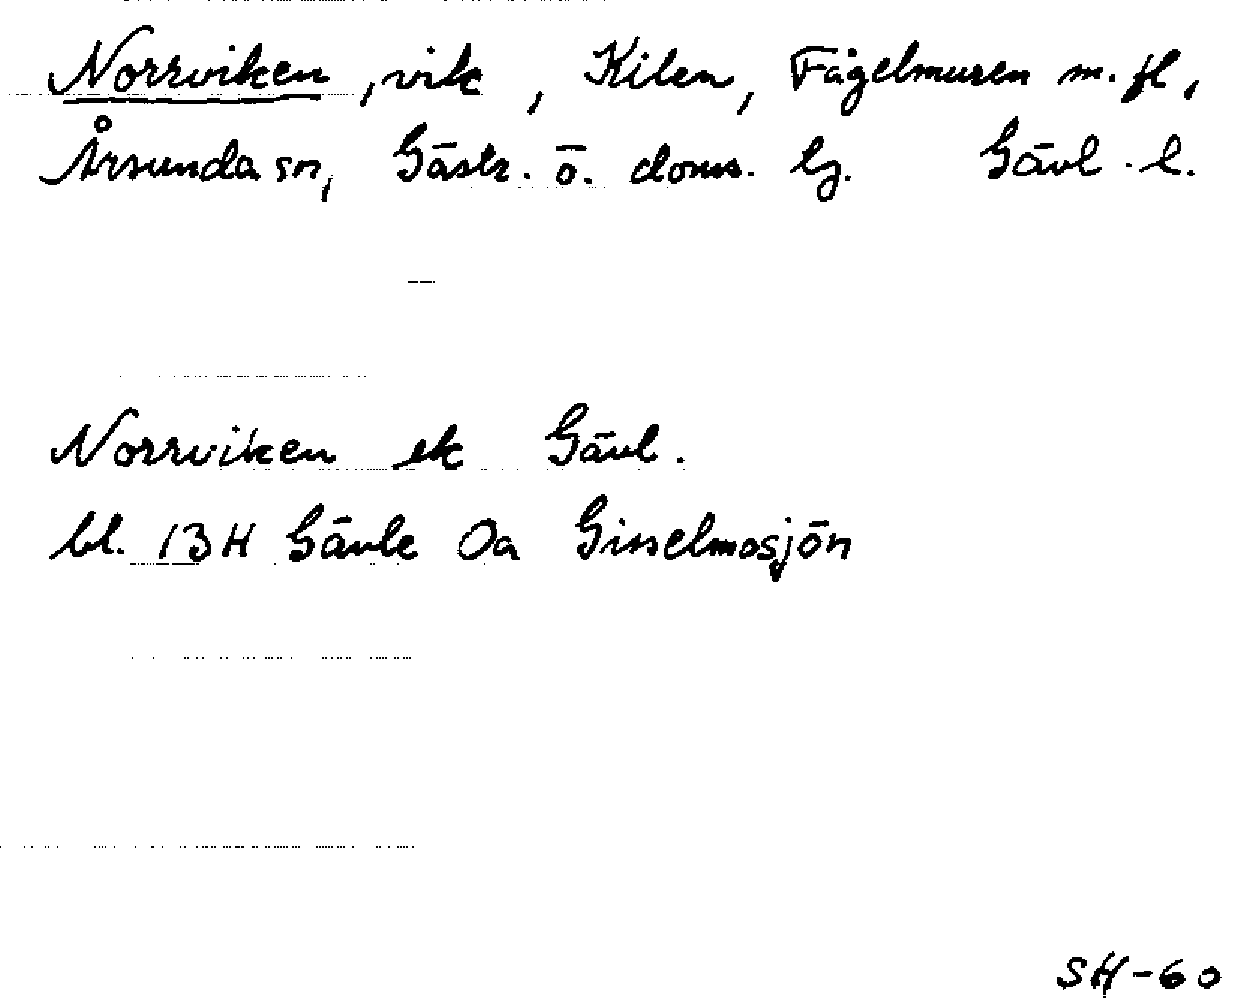 Norrviken, vik, Kilen, Fågelmuren m. fl,
Årsunda sn, Gästr. ö. doms. lg. Gävl. l.
Norrviken ek Gävl.
bl. 13H Gävle 0a Gisselmosjön
SH-60